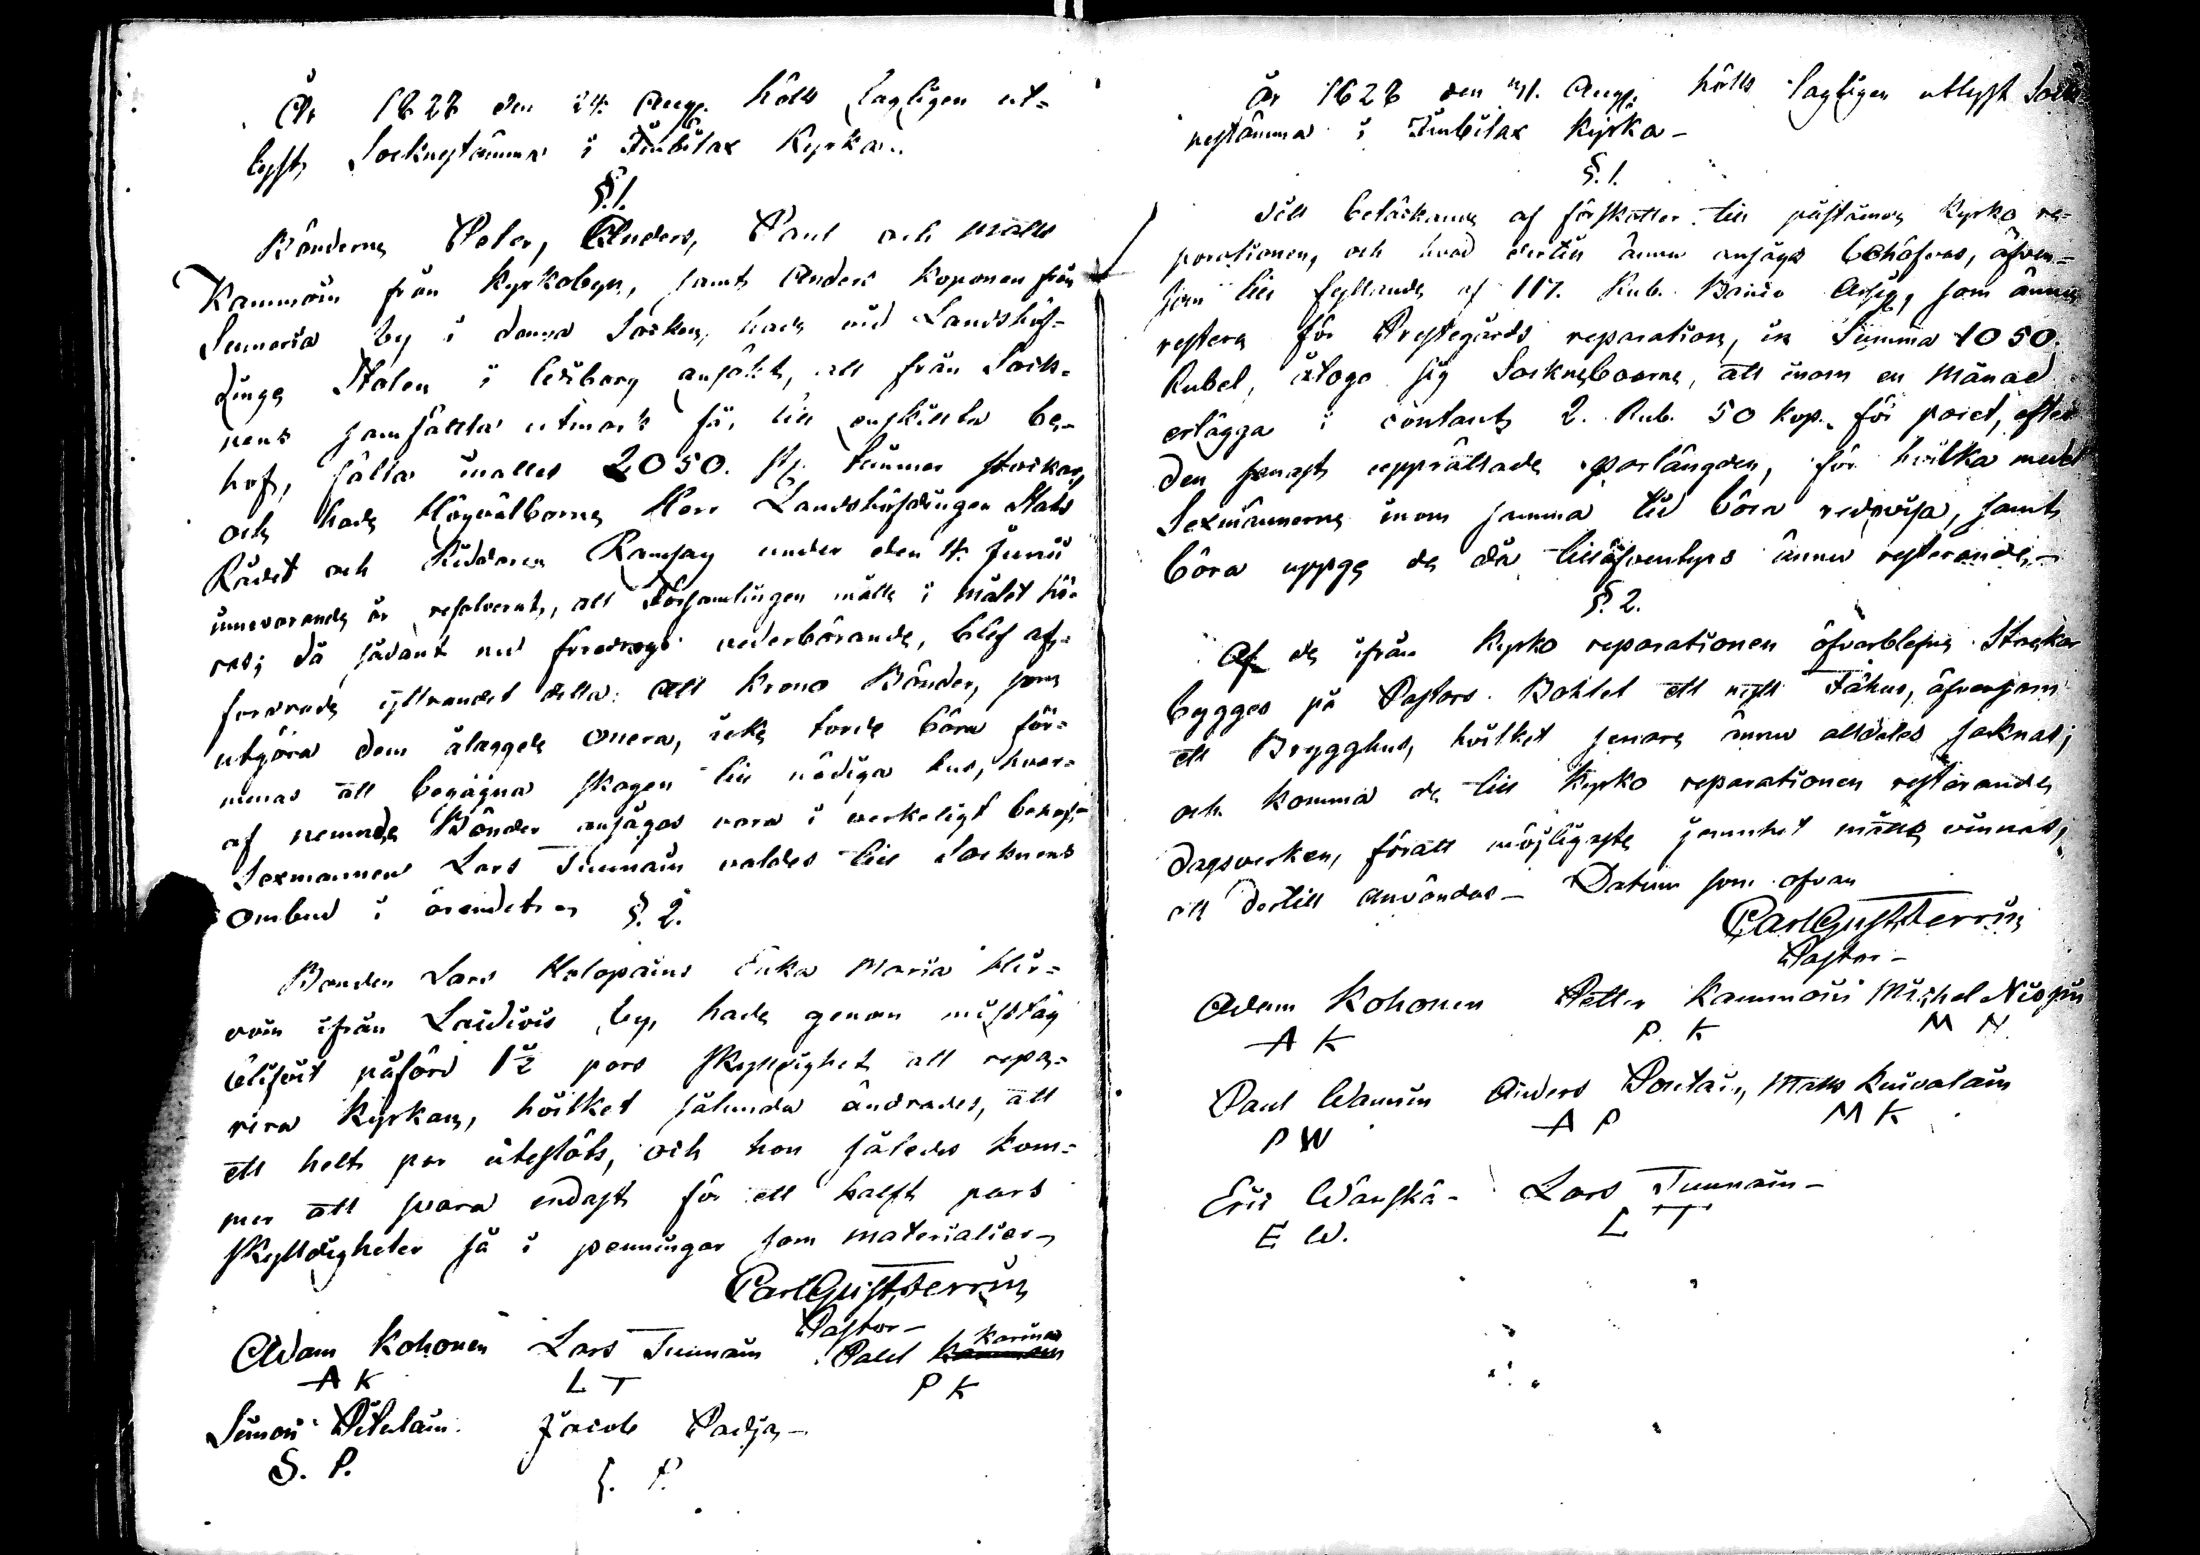 År 1828 den 24. Aug. hölls lagligen ut-
lyst Sockenstämma i Tuubilax Kyrka.
§.1.
Bönderne Peter, Anders, Paul och Matts
Kammoin från Kyrkobyn, samt Anders Koponen från
by i denna Socken, hade vid Landshöf-
dinge Stolen i Wiborg ansökt, att från Sock-
nens samfälta utmark få, till enskilta be-
hof, fälta inalles 2050. st. timmer stockar,
och hade Högvälborne Herr Landshöfdingen Stats
Rådet och Riddaren Ramsay under den 4. Junii
innevarande år resolverat, att Församlingen måtte i målet hö-
ras; då sådant nu föredrogs vederbörande, blef af-
fordrade yttrandet detta: att Krono Bönder, som
utgöra dem ålagde onera, icke torde böra för-
menas att begagna skogen till nödiga hus, hvar-
af nemnde Bönder ansågos vara i verkeligt behof.
Sexmannen Lars Tiumain valdes till Socknens
Ombud i ärendet.
§. 2.
Bonden Lars Holopains Enka Maria Hir-
voin ifrån by, hade genom misstag
blifvit påförd 1½ pars skyldighet att repa-
rera Kyrkan, hvilket sålunda ändrades, att
ett helt par uteslöts, och hon således kom-
mer att svara endast för ett halft pars
skylldigheter så i penningar som materialier.
Carl Gust. Terrin
Pastor-
Adam Kohonen Lars Tiumain Paul Karina
A K L T P K
Simon Pitulain Jacob Padja-
S. P. J. P.
År 1828 den 31. Aug. hölls lagligen utlyst Sock-
nestämma i Tuubilax Kyrka-
§.1.
Till betäckande af förskotter till påstående Kyrko re-
parationen, och hvad dertill ännu ansågs behöfvas, äfven-
som till fyllande af 117. Rub. Banco Assig, som ännu
restera för Prestegårds reparation, in Summa 1050.
Rubel, åtogo sig Sockneboerne, att inom en Månad
erlägga i contant 2. Rub. 50 kop. för paret, efter
den senast upprättade parlängden, för hvilka medel
Sexmännerne inom samma tid böra redovisa, samt
böra uppge de då tilläfventyrs ännu resterande.-
§. 2.
Af de ifrån Kyrko reparationen öfverblefne Stockar
bygges på Pastors Bohlet ett nytt Fähus, äfvensom
ett Brygghus, hvilket senare ännu alldeles saknas;
och komma de till Kyrko reparationen resterande
dagsverken, föratt möjligaste jemnhet måtte vinnas,
att dertill användas- Datum som ofvan
Carl Gust. Terrin
Pastor-
Adam Kohonen Petter Kammoin Michel
A K P. K M N.
Paul Wannin Anders Poutain, Matts Kuivalain
P W A P M K
Eric Wänskä- Lars Tiumain-
E W. L T